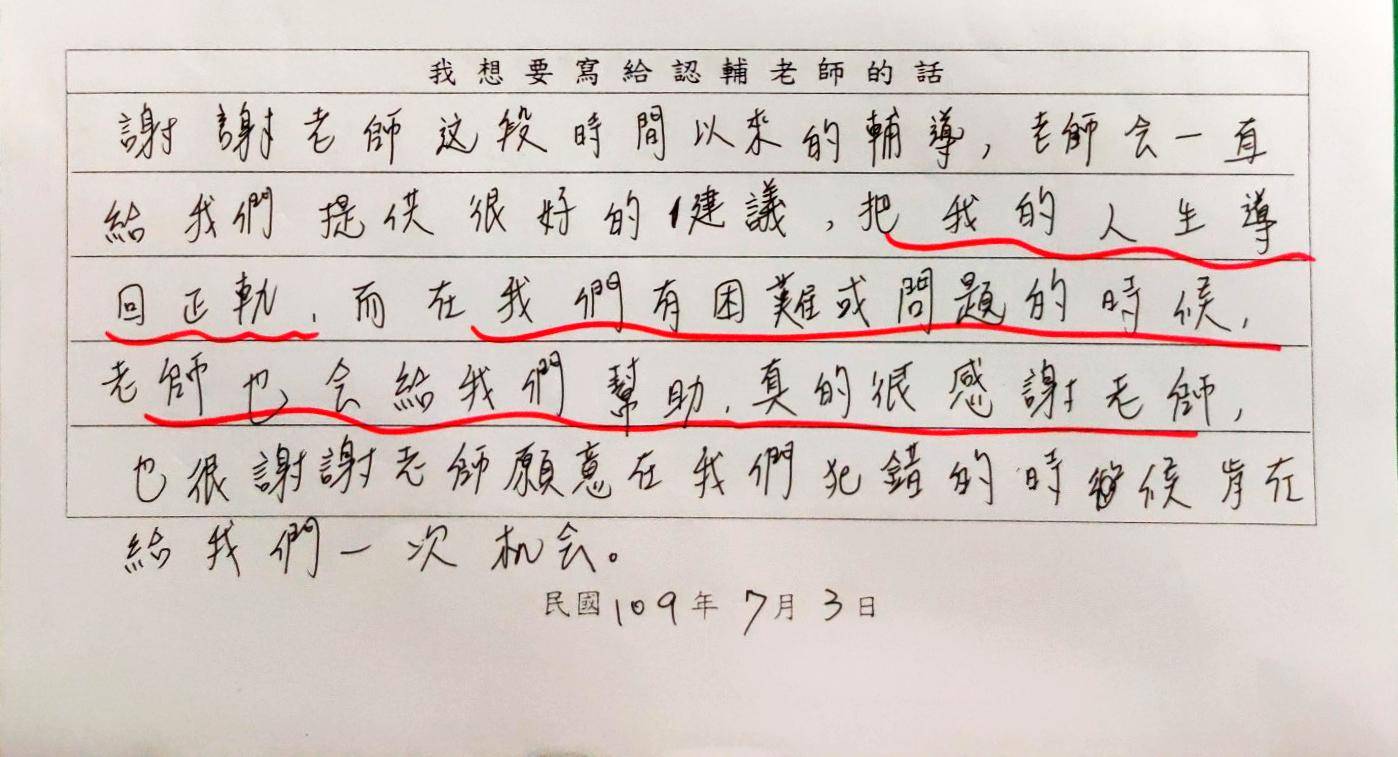 我想要寫給認輔老師的話
謝謝老師这段時間以來的輔導,老師会一直
給我們提供很好的建議,把我的人生導
回正軌,而在我們有困難或問題的時候,
老師也会給我們幫助,真的很感謝老師,
也很謝謝老師願意在我們犯錯的時候肯在
給我們一次机会。
民國109年7月3日